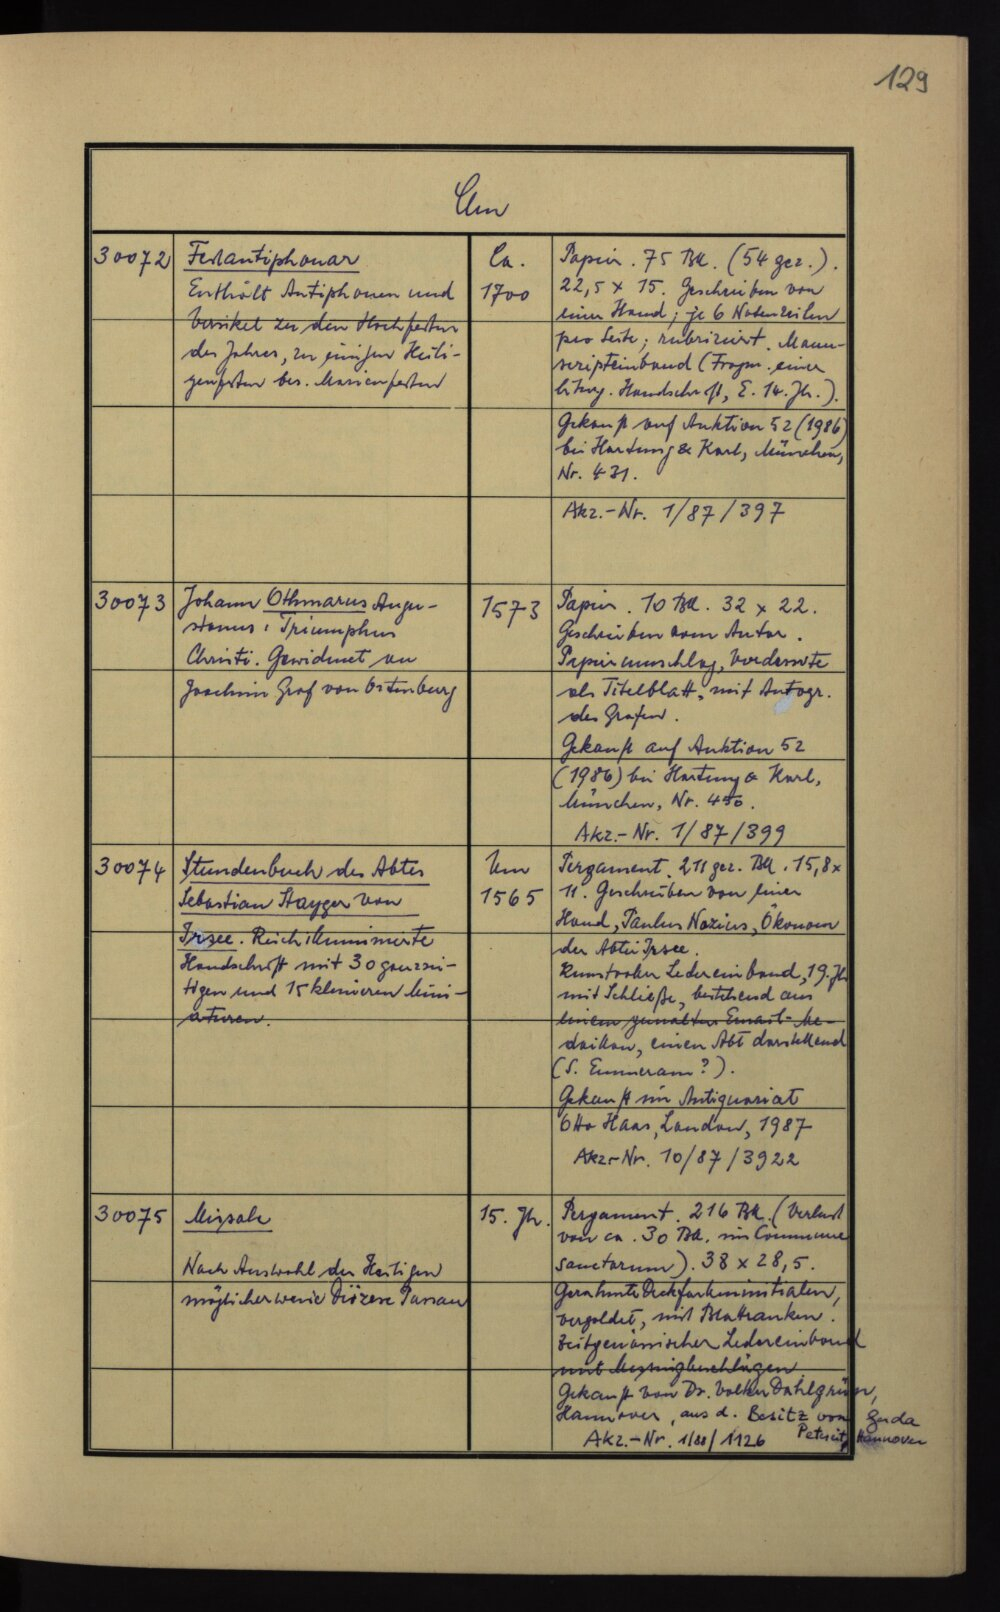 129
Clm
30072
Festantiphonar
Enthält Antiphonen und
Versikel zu den Hochfesten
des Jahres, zu einigen Heili-
genfesten bes. Marienfesten
Ca.
1700
Papier. 75 Bll. (54 gez.).
22,5 x 15. Geschrieben von
einer Hand; je 6 Notenzeilen
pro Seite; rubriziert. Manu-
scripteinband (Fragm. einer
liturg. Handschrift, E. 14. Jh.).
Gekauft auf Auktion 52 (1986)
bei Hartung & Karl, München,
Nr. 431.
Akz.-Nr. 1/87/397
30073
Johann Othmarus Augu-
stanus: Triumphus
Christi. Gewidmet an
Joachim Graf von Ortenburg
1573
Papier. 10 Bll. 32 x 22.
Geschrieben vom Autor.
Papierumschlag, Vorderseite
als Titelblatt, mit Autogr.
des Grafen.
Gekauft auf Auktion 52
(1986) bei Hartung & Karl,
München, Nr. 450.
Akz.-Nr. 1/87/399
30074
Stundenbuch des Abtes
Sebastian Stayger von
Irsee. Reich illuminierte
Handschrift mit 30 ganzsei-
tigen und 15 kleineren Mini-
aturen.
Um
1565
Pergament. 211 gez. Bll. 15,8 x
11. Geschrieben von einer
Hand, Paulus Nozicus, Ökonom
der Abtei Irsee.
Kunstvoller Ledereinband, 19. Jh
mit Schließe, bestehend aus
einem gemalten Email-Me-
daillon, einen Abt darstellend
(S. Emmeram?).
Gekauft im Antiquariat
Otto Haas, London, 1987
Akz.-Nr. 10/87/3922
30075
Missale
Nach Auswahl der Heiligen
möglicherweise Diözese Passau
15. Jh.
Pergament. 216 Bll. (Verlust
von ca. 30 Bll. im Commune
sanctorum). 38 x 28,5.
Gerahmte Deckfarbeninitialen,
vergoldet, mit Blattranken.
Zeitgenössischer Ledereinband
mit Messingbeschlägen
Gekauft von Dr. Volker Dahlgrün,
Hannover, aus d. Besitz von Gerda
Petereit, Hannover
Akz.-Nr. 1/88/1126